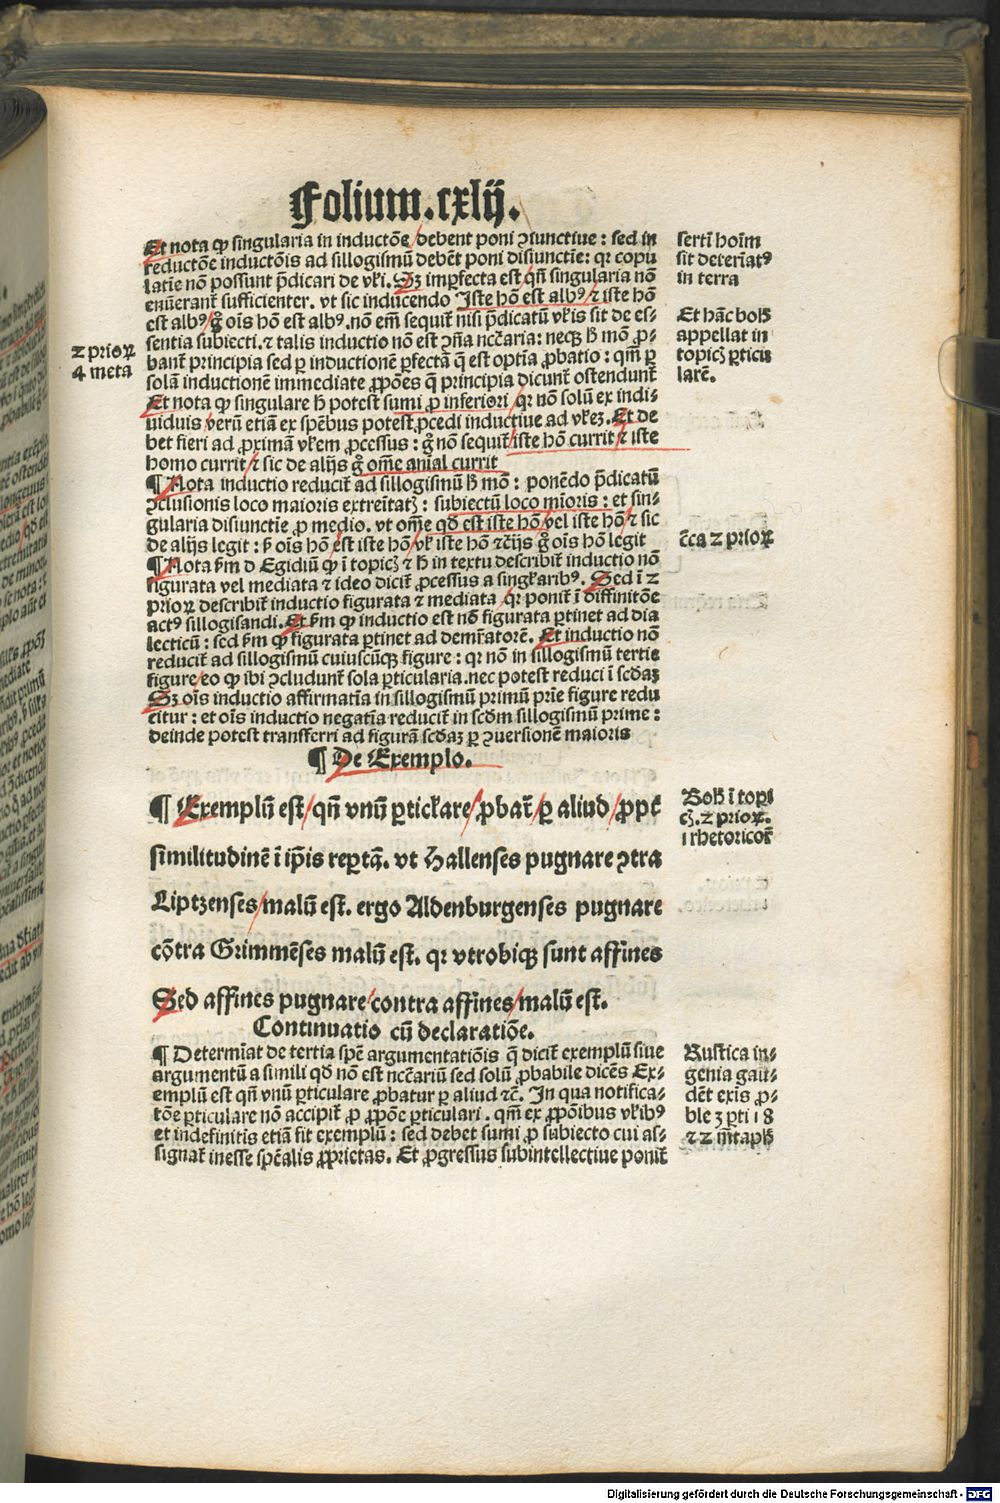 Folium.cxlij.
Et nota ꝙ singularia in inductōe debent poni ꝯiunctiue : sed in
reductōe inductōis ad sillogismū debēt poni disiunctīe: qꝛ copu
latīe nō possunt p̄dicari de vl̄i. Sꝫ imꝑfecta est qn̄ singularia nō
enūerant᷑ sufficienter. vt sic inducendo Iste hō est alb⁹ ⁊ iste hō
est alb⁹ gͦ oīs hō est alb⁹. nō em̄ sequit᷑ nisi p̄dicatū vl̄is sit de es-
sentia subiecti. ⁊ talis inductio nō est ꝯn̄a necc̄aria: neqꝫ h̄ mō ꝓ-
bant᷑ principia sed ꝑ inductionē ꝑfectā q̄ est optīa ꝓbatio : qm̄ ꝑ
solā inductionē immediate ꝓpōes q̄ principia dicunt᷑ ostendunt᷑
Et nota ꝙ singulare h̄ potest sumi ꝓ inferiori qꝛ nō solū ex indi-
uiduis verū etiā ex spēbus potest ꝓcedi inductiue ad vl̄eꝫ. Et de
bet fieri ad ꝓximā vl̄em ꝓcessus : gͦ nō sequit᷑ iste hō currit ⁊ iste
homo currit ⁊ sic de alijs gͦ om̄e anīal currit
¶ Nota inductio reducit᷑ ad sillogismū h̄ mō : ponēdo p̄dicatū
ꝯclusionis loco maioris extreītatꝭ : subiectū loco mīoris : et sin-
gularia disiunctīe ꝓ medio. vt om̄e qd̄ est iste hō vel iste hō ⁊ sic
de alijs legit : s̄ oīs hō est iste hō vl̄ iste hō ⁊c̄ijs gͦ oīs hō legit
¶ Nota s̄m d Egidiū ꝙ ī topicꝭ ⁊ h̄ in textu describit᷑ inductio nō
figurata vel mediata ⁊ ideo dicit᷑ ꝓcessus a singl̄arib⁹. Sed ī 2
prioꝝ describit᷑ inductio figurata ⁊ mediata qꝛ ponit᷑ ī diffinitōe
act⁹ sillogisandi. Et s̄m ꝙ inductio est nō figurata ꝑtinet ad dia
lecticū : sed s̄m ꝙ figurata ꝑtinet ad demr̄atorē. Et inductio nō
reducit᷑ ad sillogismū cuiuscūqꝫ figure : qꝛ nō in sillogismū tertie
figure eo ꝙ ibi ꝯcludunt᷑ sola ꝑticularia. nec potest reduci ī scd̄aꝫ
Sꝫ oīs inductio affirmatīa in sillogismū primū prīe figure redu
citur : et oīs inductio negatīa reducit᷑ in scd̄m sillogismū prime :
deinde potest transferri ad figurā scd̄aꝫ ꝑ ꝯuersionē maioris
¶ De Exemplo.
¶ Exemplū est qn̄ vnū ꝑticl̄are ꝓbat᷑ ꝑ aliud ꝓpt᷑
similitudinē ī ip̄is reꝑtā. vt Hallenses pugnare ꝯtra
Liptzenses malū est. ergo Aldenburgenses pugnare
cōtra Grimmēses malū est. qꝛ vtrobiqꝫ sunt affines
Sed affines pugnare contra affines malū est.
Continuatio cū declaratiōe.
¶ Determīat de tertia spē argumentatiōis q̄ dicit᷑ exemplū siue
argumentū a simili qd̄ nō est necc̄ariū sed solū ꝓbabile dicēs Ex-
emplū est qn̄ vnū ꝑticulare ꝓbatur ꝑ aliud ⁊c̄. In qua notifica-
tōe ꝑticulare nō accipit᷑ ꝓ ꝓpōe ꝑticulari. qm̄ ex ꝓpōibus vl̄ib⁹
et indefinitis etiā fit exemplū : sed debet sumi ꝓ subiecto cui as-
signat᷑ inesse spēalis ꝓprietas. Et ꝓgressus subintellectiue ponit᷑
2 prioꝝ
4 meta
serti hoīm
sit deterīat⁹
in terra
Et hāc boh̄
appellat in
topicꝭ ꝑticu
larē.
c̄ca 2 prioꝝ
Boh̄ ī topi
cꝭ. 2 prioꝝ.
1 rhetoricoꝝ
Rustica in-
genia gau-
dēt exīs ꝓ-
ble 3 ꝑti 18
⁊ 2 m̄taph̄
Digitalisierung gefördert durch die Deutsche Forschungsgemeinschaft - DFG